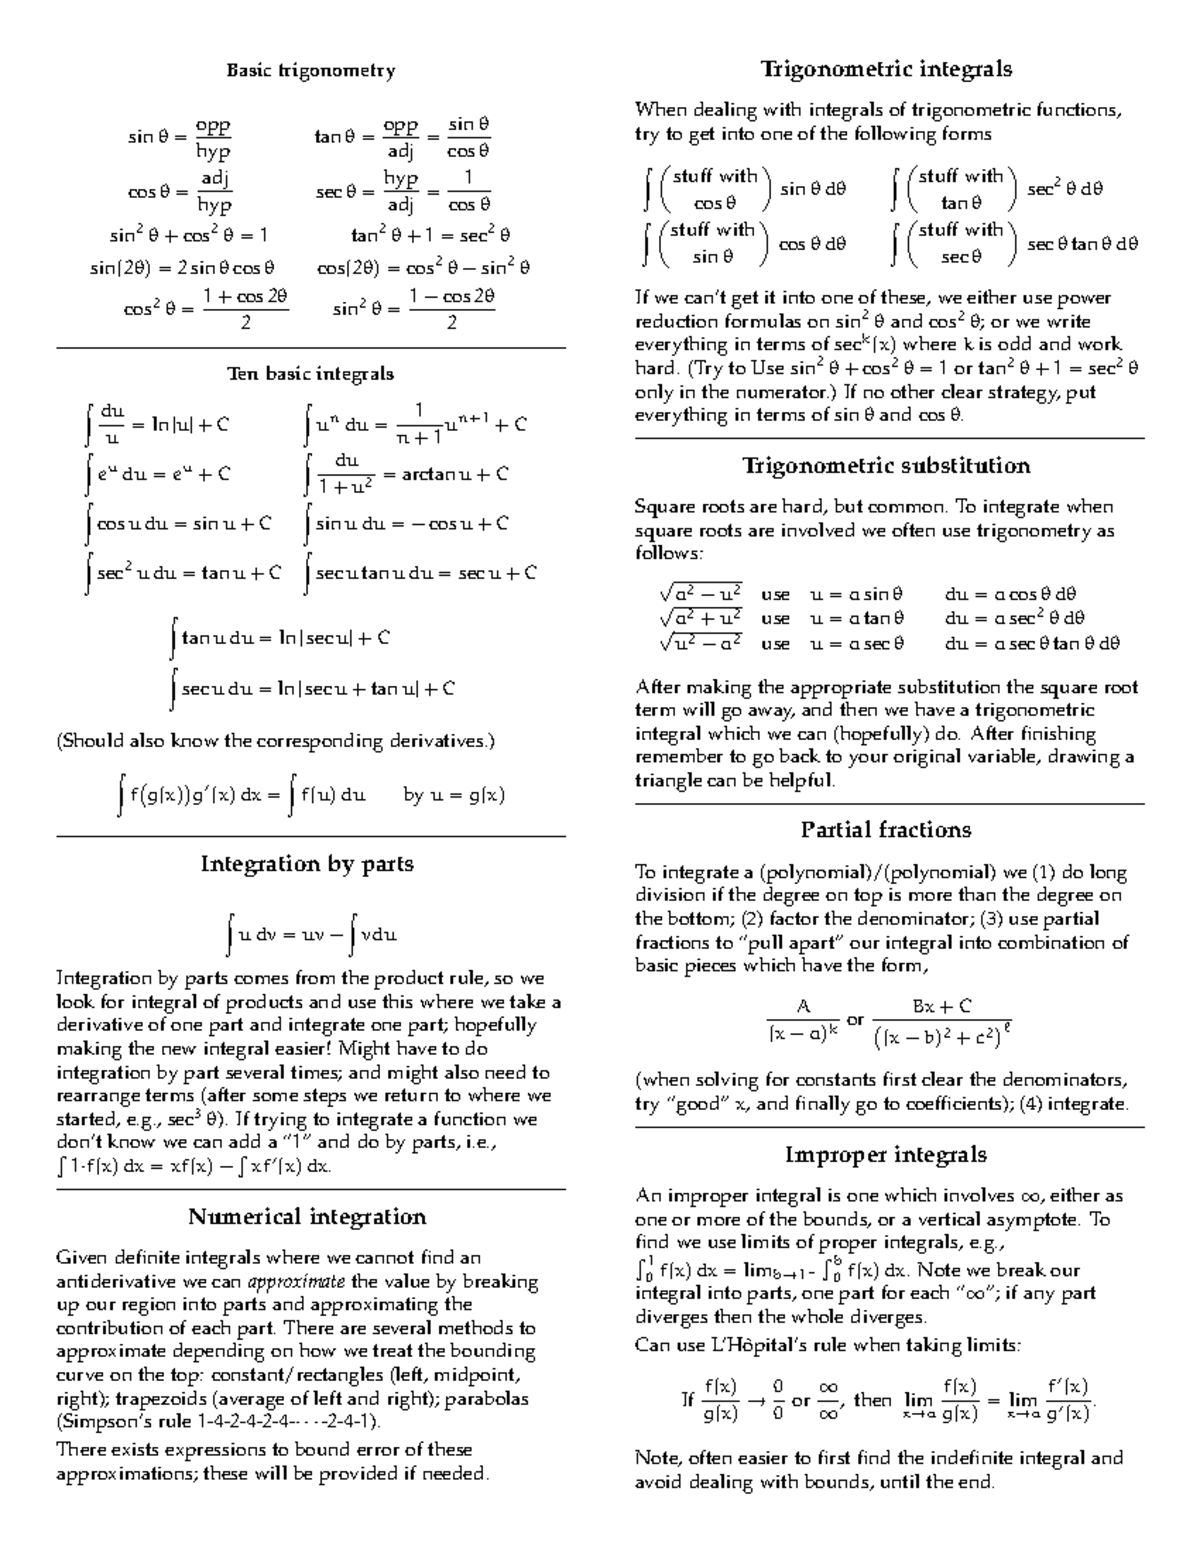 Basic trigonometry
sin θ = opp/hyp    tan θ = opp/adj = sin θ/cos θ
cos θ = adj/hyp    sec θ = hyp/adj = 1/cos θ
sin² θ + cos² θ = 1    tan² θ + 1 = sec² θ
sin(2θ) = 2 sin θ cos θ    cos(2θ) = cos² θ − sin² θ
cos² θ = (1 + cos 2θ)/2    sin² θ = (1 − cos 2θ)/2
Ten basic integrals
∫ du/u = ln|u| + C    ∫ uⁿ du = 1/(n + 1) uⁿ⁺¹ + C
∫ eᵘ du = eᵘ + C    ∫ du/(1 + u²) = arctan u + C
∫ cos u du = sin u + C    ∫ sin u du = − cos u + C
∫ sec² u du = tan u + C    ∫ sec u tan u du = sec u + C
∫ tan u du = ln|sec u| + C
∫ sec u du = ln|sec u + tan u| + C
(Should also know the corresponding derivatives.)
∫ f(g(x))g′(x) dx = ∫ f(u) du    by u = g(x)
Integration by parts
∫ u dv = uv − ∫ vdu
Integration by parts comes from the product rule, so we
look for integral of products and use this where we take a
derivative of one part and integrate one part; hopefully
making the new integral easier! Might have to do
integration by part several times; and might also need to
rearrange terms (after some steps we return to where we
started, e.g., sec³ θ). If trying to integrate a function we
don't know we can add a "1" and do by parts, i.e.,
∫ 1·f(x) dx = xf(x) − ∫ xf′(x) dx.
Numerical integration
Given definite integrals where we cannot find an
antiderivative we can approximate the value by breaking
up our region into parts and approximating the
contribution of each part. There are several methods to
approximate depending on how we treat the bounding
curve on the top: constant/rectangles (left, midpoint,
right); trapezoids (average of left and right); parabolas
(Simpson's rule 1-4-2-4-2-4-···-2-4-1).
There exists expressions to bound error of these
approximations; these will be provided if needed.
Trigonometric integrals
When dealing with integrals of trigonometric functions,
try to get into one of the following forms
∫ (stuff with cos θ) sin θ dθ    ∫ (stuff with tan θ) sec² θ dθ
∫ (stuff with sin θ) cos θ dθ    ∫ (stuff with sec θ) sec θ tan θ dθ
If we can't get it into one of these, we either use power
reduction formulas on sin² θ and cos² θ; or we write
everything in terms of secᵏ(x) where k is odd and work
hard. (Try to Use sin² θ + cos² θ = 1 or tan² θ + 1 = sec² θ
only in the numerator.) If no other clear strategy, put
everything in terms of sin θ and cos θ.
Trigonometric substitution
Square roots are hard, but common. To integrate when
square roots are involved we often use trigonometry as
follows:
√(a² − u²)  use  u = a sin θ    du = a cos θ dθ
√(a² + u²)  use  u = a tan θ    du = a sec² θ dθ
√(u² − a²)  use  u = a sec θ    du = a sec θ tan θ dθ
After making the appropriate substitution the square root
term will go away, and then we have a trigonometric
integral which we can (hopefully) do. After finishing
remember to go back to your original variable, drawing a
triangle can be helpful.
Partial fractions
To integrate a (polynomial)/(polynomial) we (1) do long
division if the degree on top is more than the degree on
the bottom; (2) factor the denominator; (3) use partial
fractions to "pull apart" our integral into combination of
basic pieces which have the form,
A/(x − a)ᵏ or (Bx + C)/((x − b)² + c²)^ℓ
(when solving for constants first clear the denominators,
try "good" x, and finally go to coefficients); (4) integrate.
Improper integrals
An improper integral is one which involves ∞, either as
one or more of the bounds, or a vertical asymptote. To
find we use limits of proper integrals, e.g.,
∫₀¹ f(x) dx = lim_{b→1-} ∫₀ᵇ f(x) dx. Note we break our
integral into parts, one part for each "∞"; if any part
diverges then the whole diverges.
Can use L'Hôpital's rule when taking limits:
If f(x)/g(x) → 0/0 or ∞/∞, then lim_{x→a} f(x)/g(x) = lim_{x→a} f′(x)/g′(x).
Note, often easier to first find the indefinite integral and
avoid dealing with bounds, until the end.